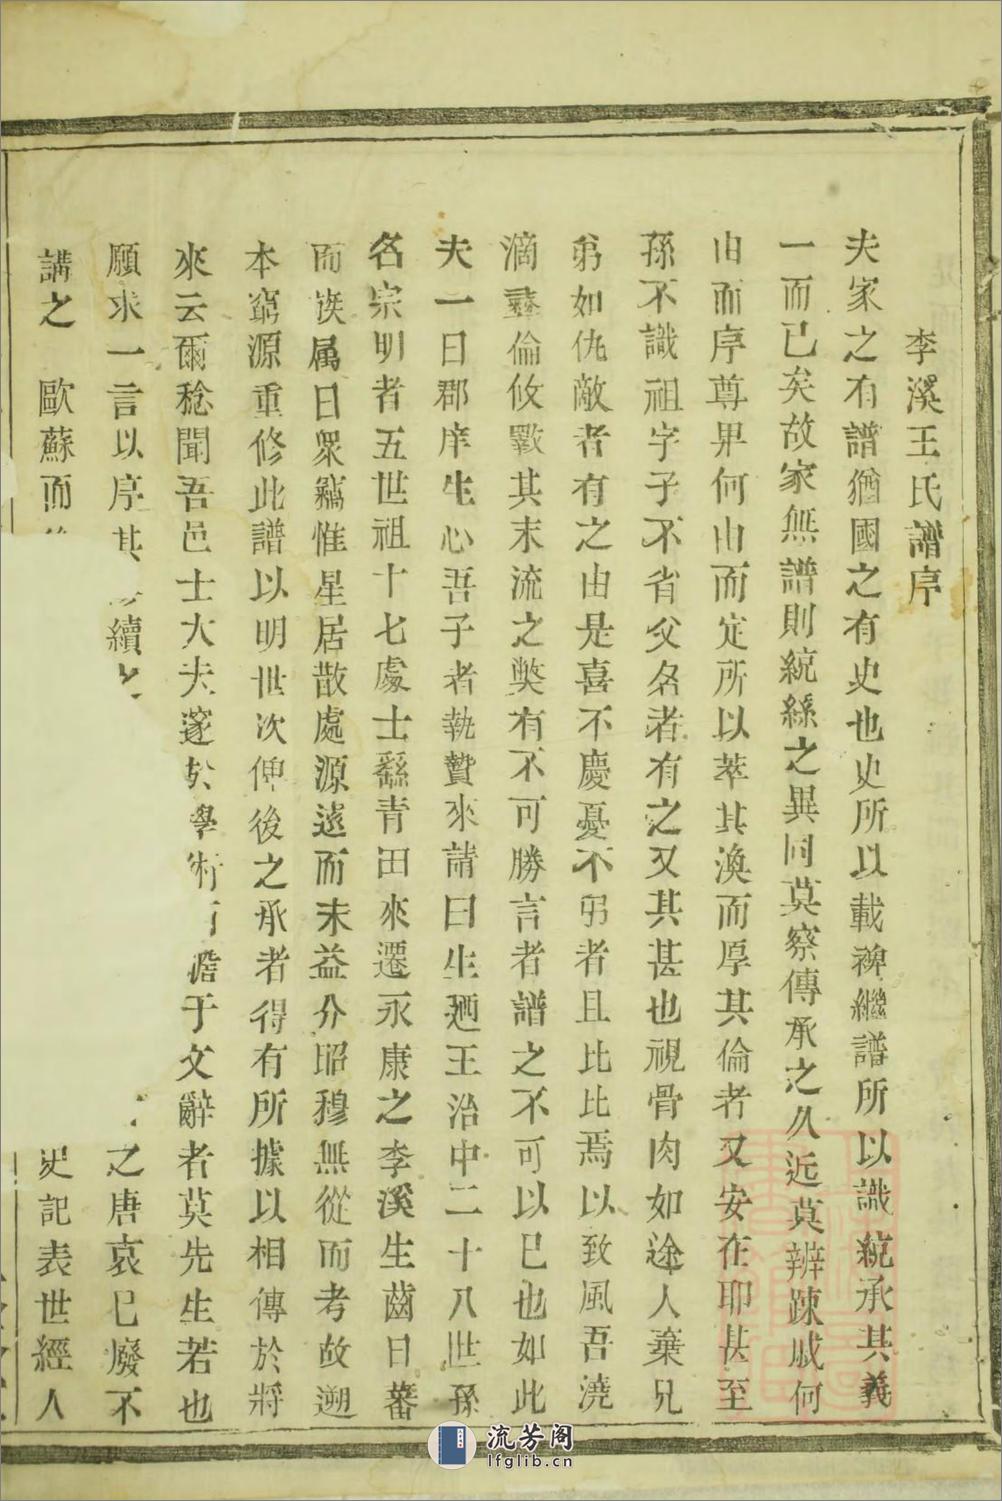 李溪王氏譜序
夫家之有譜猶國之有史也史所以載禆繼譜所以識統承其義
一而已矣故家無譜則統緜之異同莫察傳承之久近莫辨踈戚何
由而序尊畀何由而定所以萃其渙而厚其倫者又安在耶甚至
孫不識祖字子不省父名者有之又其甚也視骨肉如途人棄兄
弟如仇敵者有之由是喜不慶憂不弔者且比比焉以致風吾澆
滴彝倫攸斁其末流之獘有不可勝言者譜之不可以已也如此
夫一日郡庠生心吾子者執贄來請曰生廼王治中二十八世孫
名宗明者五世祖十七處士繇青田來遷永康之李溪生齒日蕃
而族属日衆繑惟星居散處源遠而末益分昭穆無從而考故遡
本窮源重修此譜以明世次俾後之承者得有所據以相傳於將
來云爾稔聞吾邑士大夫邃於學術 于文辭者莫先生若也
願求一言以序其 續 之唐衰已廢不
講之 歐蘇而 史記表世經人
流芳阁
lfglib.cn